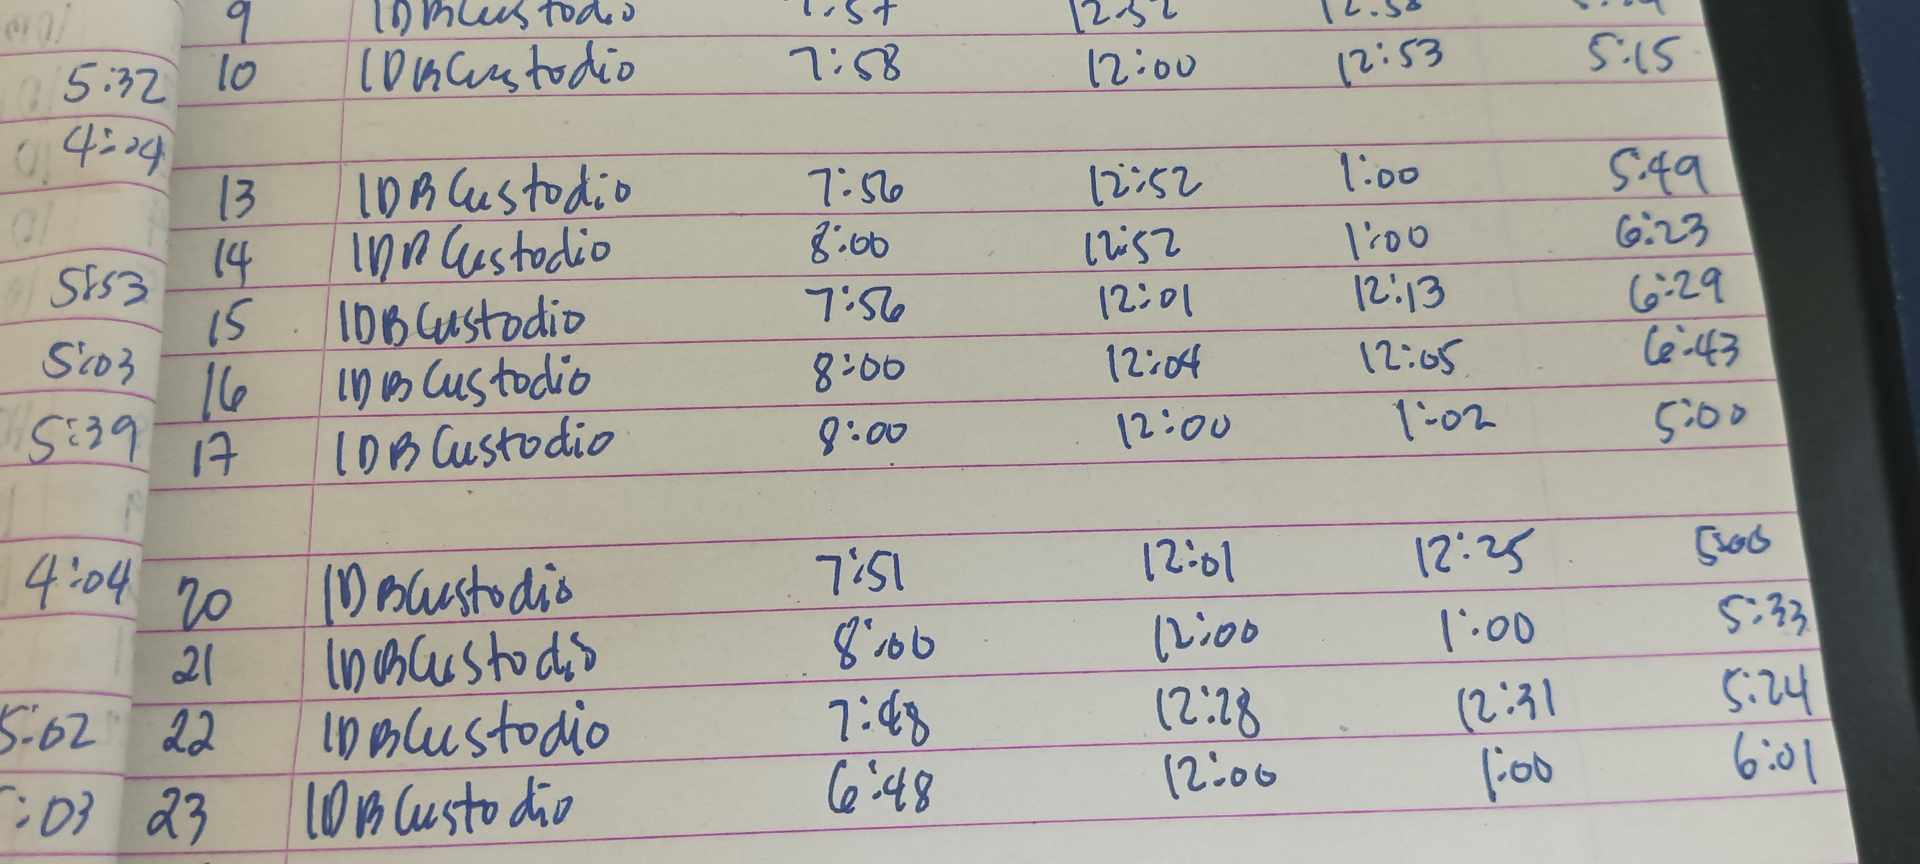 9 IDBCustodio 7:57 12:52 12:58
5:32 10 IDBCustodio 7:58 12:00 12:53 5:15
4:04
13 IDBCustodio 7:56 12:52 1:00 5:49
14 IDBCustodio 8:00 12:52 1:00 6:23
5:53 15 IDBCustodio 7:56 12:01 12:13 6:29
5:03 16 IDBCustodio 8:00 12:04 12:05 6:43
5:39 17 IDBCustodio 8:00 12:00 1:02 5:00
4:04 20 IDBCustodio 7:51 12:01 12:25 5:00
21 IDBCustodio 8:00 12:00 1:00 5:33
5:02 22 IDBCustodio 7:48 12:28 12:31 5:24
:03 23 IDBCustodio 6:48 12:00 1:00 6:01